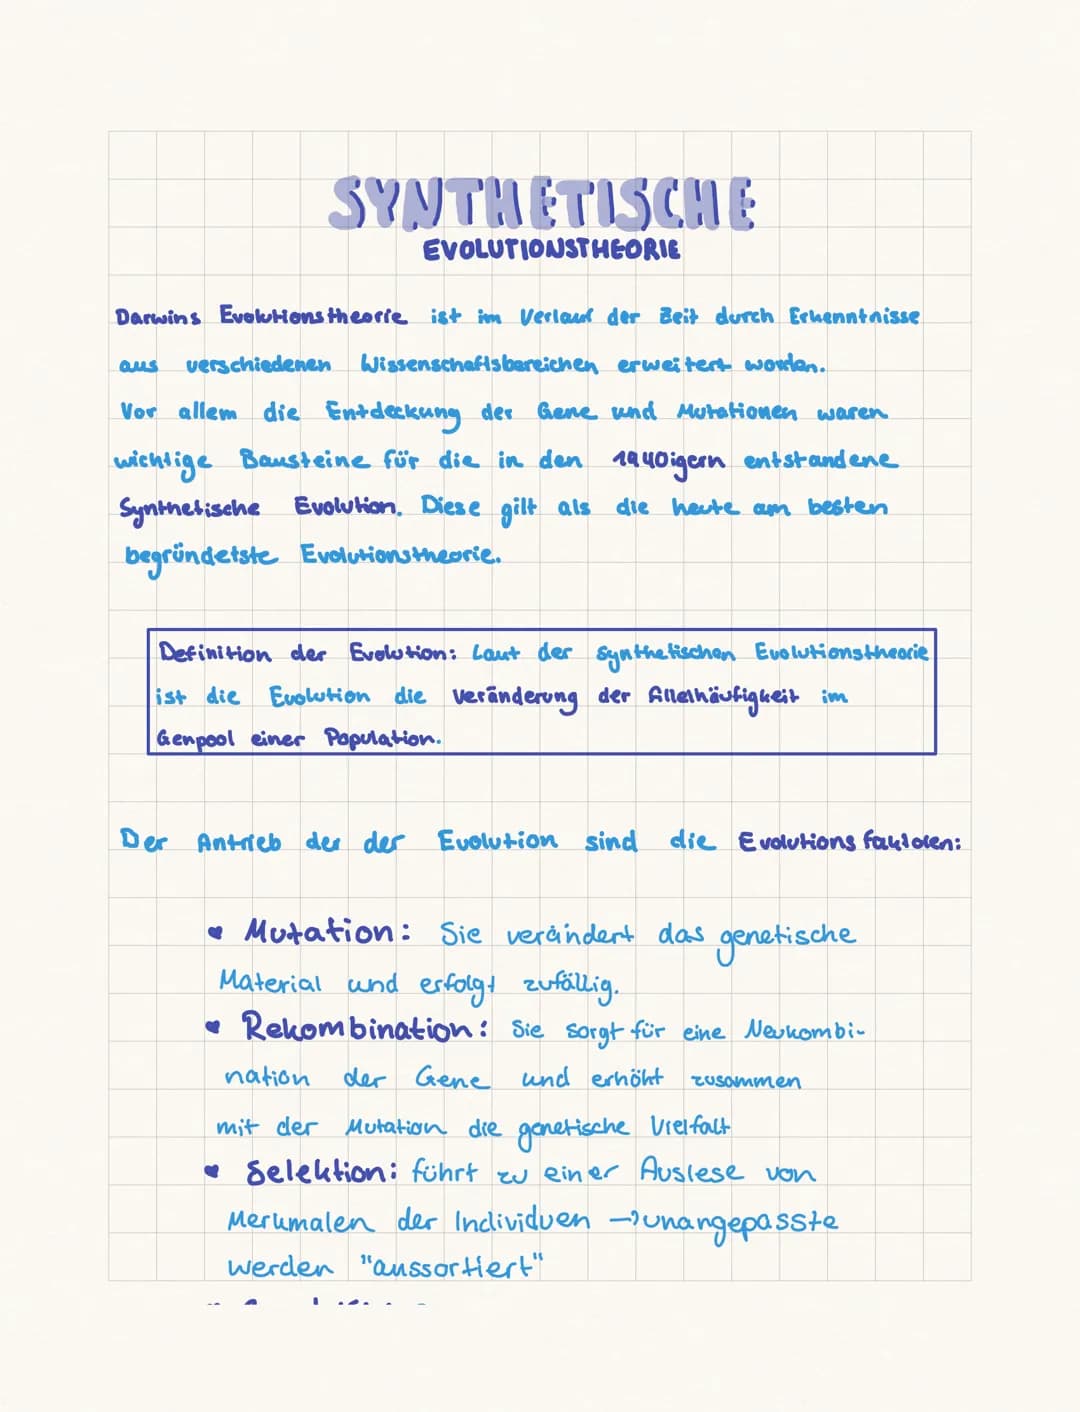 SYNTHETISCHE
EVOLUTIONSTHEORIE
Darwins Evolutionstheorie ist im Verlauf der Zeit durch Erkenntnisse
aus verschiedenen Wissenschaftsbereichen erweitert worden.
Vor allem die Entdeckung der Gene und Mutationen waren
wichtige Bausteine für die in den 1940igern entstandene
Synthetische Evolution. Diese gilt als die heute am besten
begründetste Evolutionstheorie.
Definition der Evolution: Laut der synthetischen Evolutionstheorie
ist die Evolution die Veränderung der Allelhäufigkeit im
Genpool einer Population.
Der Antrieb der der Evolution sind die Evolutionsfaktoren:
♥ Mutation: Sie verändert das genetische
Material und erfolgt zufällig.
♥ Rekombination: Sie sorgt für eine Neukombi-
nation der Gene und erhöht zusammen
mit der Mutation die genetische Vielfalt
♥ Selektion: führt zu einer Auslese von
Merkmalen der Individuen → unangepasste
werden "aussortiert"